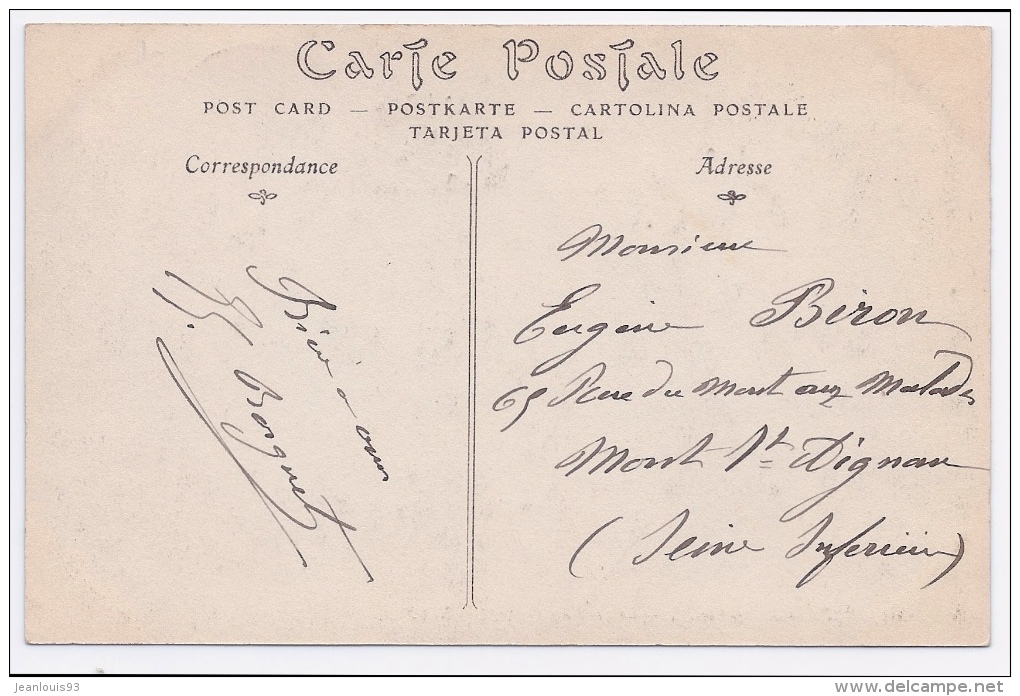 Carte Postale
POST CARD — POSTKARTE — CARTOLINA POSTALE
TARJETA POSTAL
Correspondance
Adresse
Bien à vous
Bosquet
Monsieur
Eugène Biron
65 Rue du Mont aux Malades
Mont St Aignan
(Seine Inferieure)
jeanlouis93
www.delcampe.net